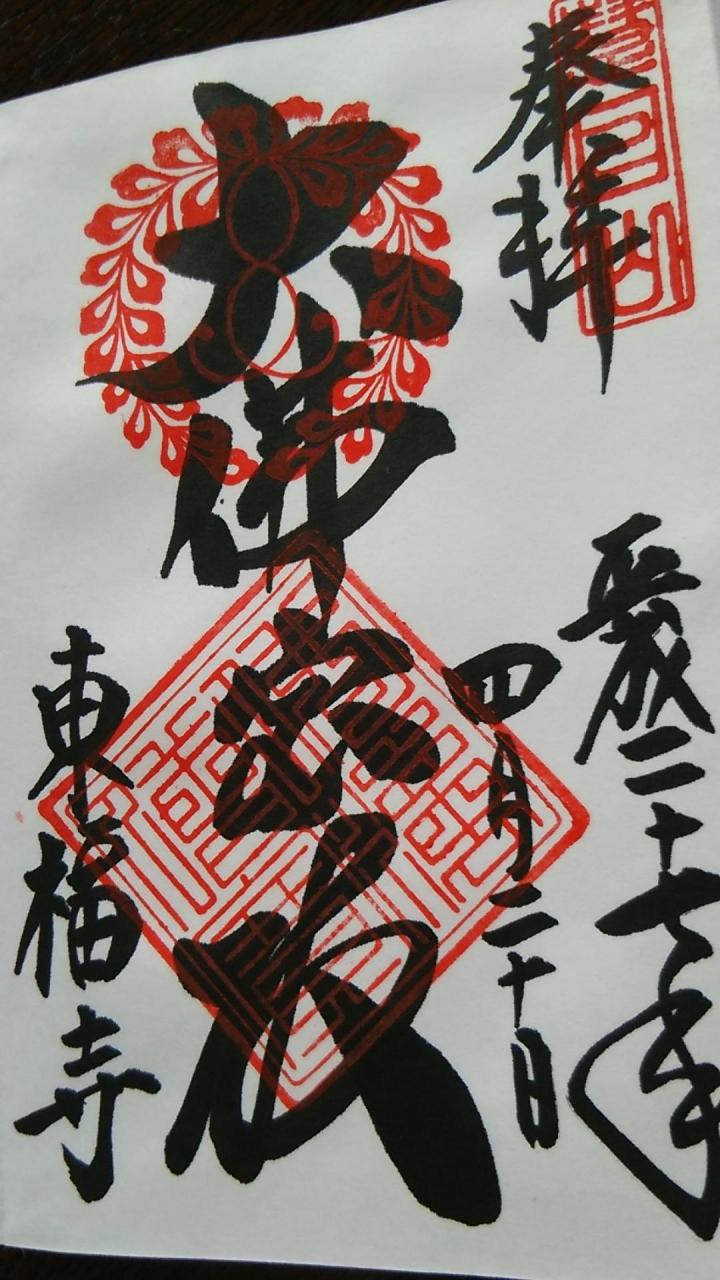 慧日山
奉拝
平成二十七年
四月二十日
大佛宝殿
東福寺